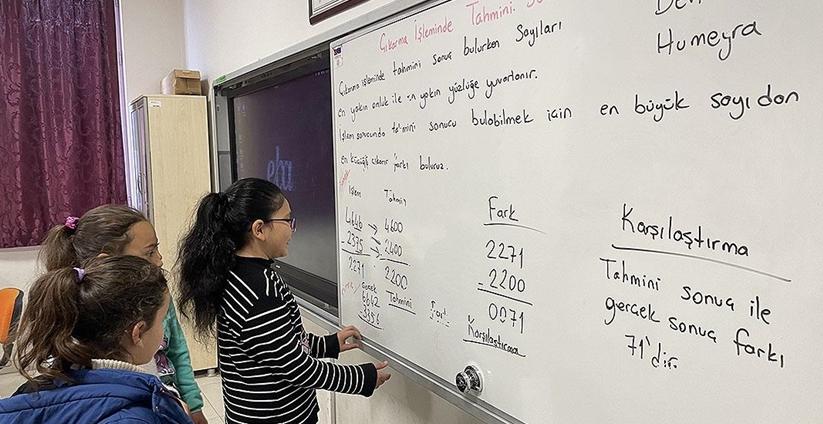 Çıkarma İşleminde Tahmini
Çıkarma işleminde tahmini sonuç bulurken Sayıları
en yakın onluk ile en yakın yüzlüğe yuvarlanır.
İşlem sonucunda tahmini sonucu bulabilmek için en büyük sayıdan
en küçüğü çıkarır farkı buluruz.
Humeyra
İşlem Tahmin
4646 → 4600
2375 → 2400
2271 2200
Gerçek Tahmini Fark
6642
3356
Fark
2271
- 2200
0071
Karşılaştırma
Karşılaştırma
Tahmini sonuç ile
gerçek sonuç farkı
71'dir.
eba